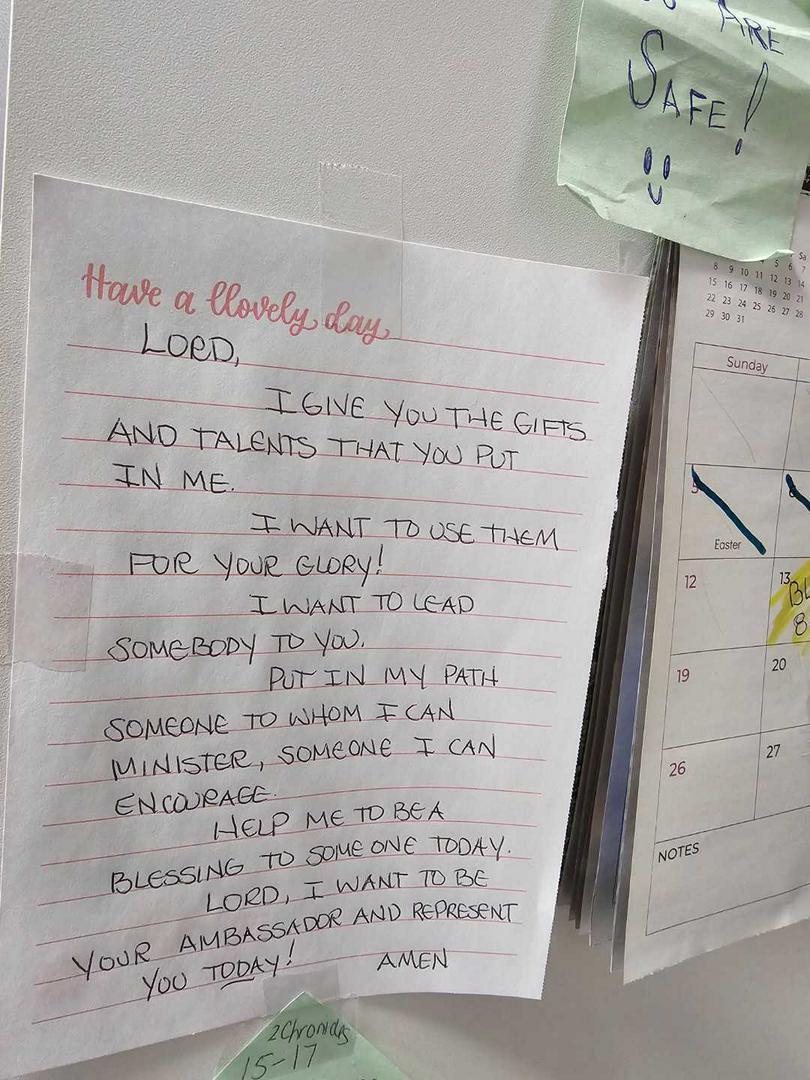 ARE
SAFE!
Have a llovely day
LORD,
I GIVE YOU THE GIFTS
AND TALENTS THAT YOU PUT
IN ME.
I WANT TO USE THEM
FOR YOUR GLORY!
I WANT TO LEAD
SOMEBODY TO YOU.
PUT IN MY PATH
SOMEONE TO WHOM I CAN
MINISTER, SOMEONE I CAN
ENCOURAGE.
HELP ME TO BE A
BLESSING TO SOMEONE TODAY.
LORD, I WANT TO BE
YOUR AMBASSADOR AND REPRESENT
YOU TODAY! AMEN
2Chronicles
15-17
Sa
4 5 6 7
8 9 10 11 12 13 14
15 16 17 18 19 20 21
22 23 24 25 26 27 28
29 30 31
Sunday
5
Easter
12 13
8
19 20
26 27
NOTES